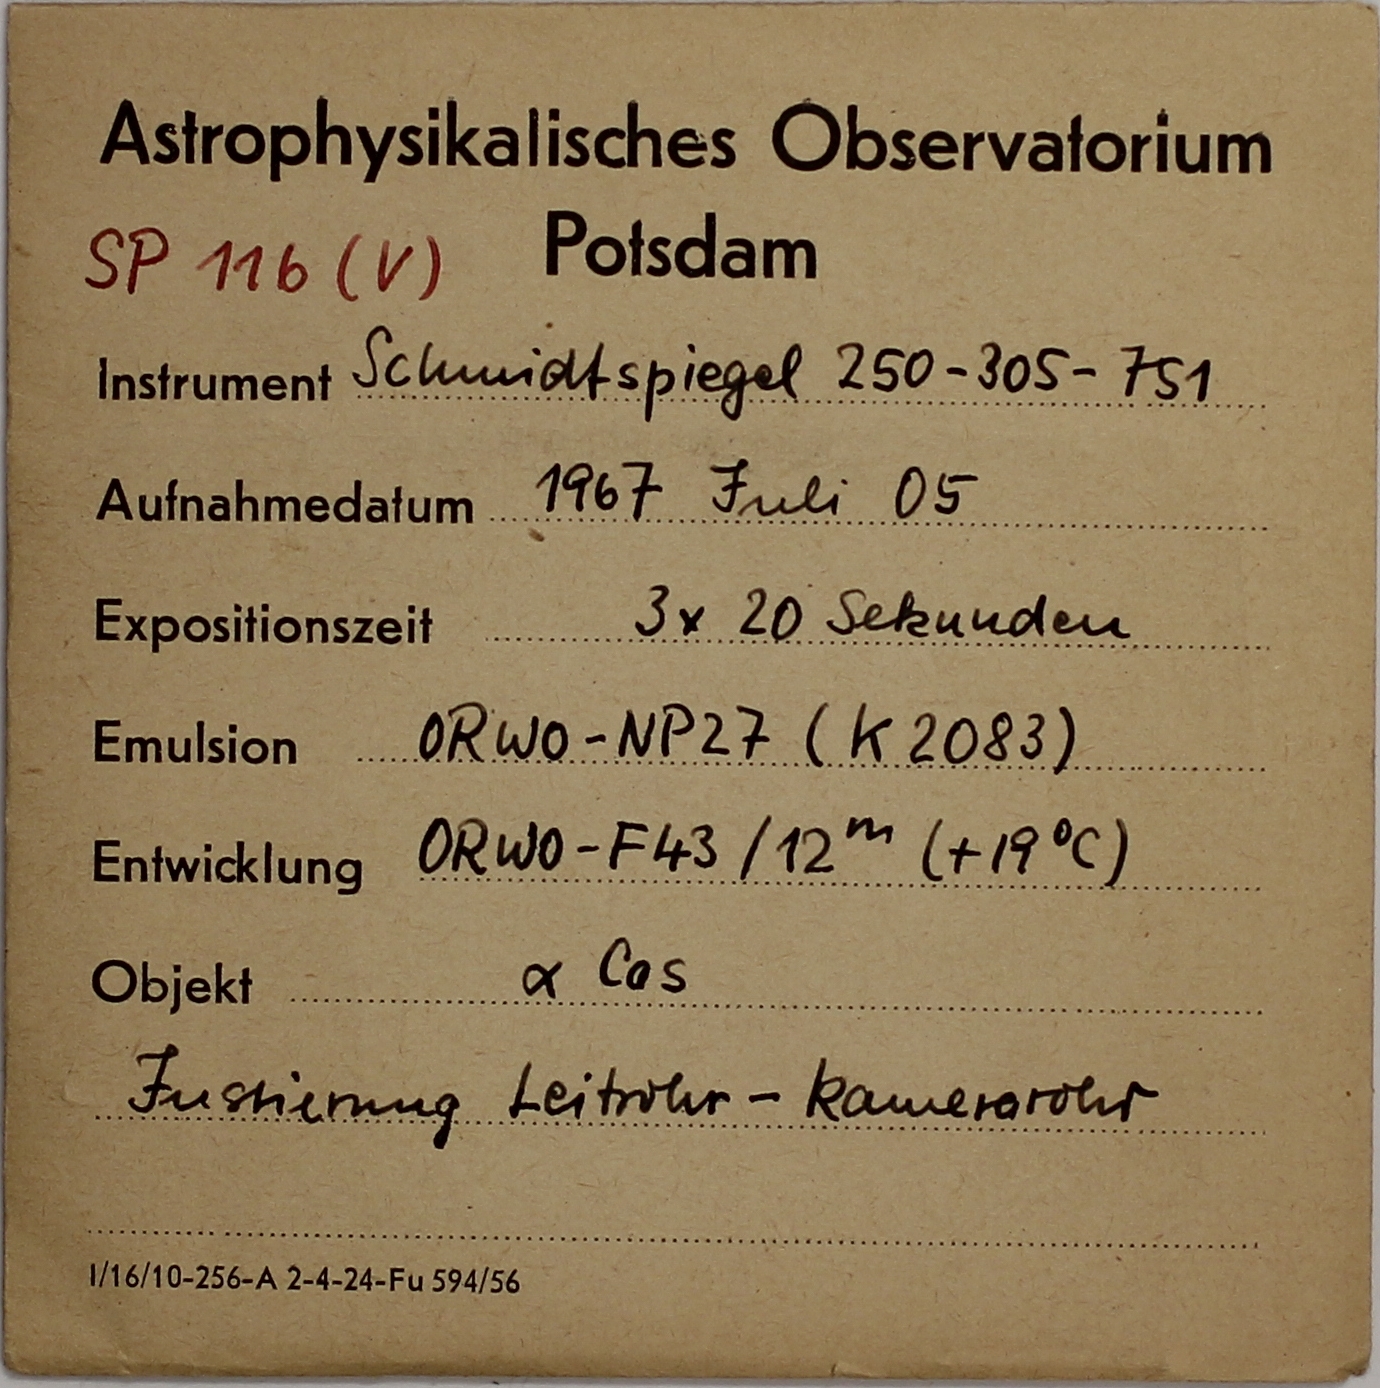 Astrophysikalisches Observatorium
Potsdam
SP 116 (V)
Instrument Schmidtspiegel 250-305-751
Aufnahmedatum 1967 Juli 05
Expositionszeit 3x 20 Sekunden
Emulsion ORWO-NP27 (K 2083)
Entwicklung ORWO-F43 /12ᵐ (+19°C)
Objekt α Cas
Justierung Leitrohr - Kamerarohr
I/16/10-256-A 2-4-24-Fu 594/56